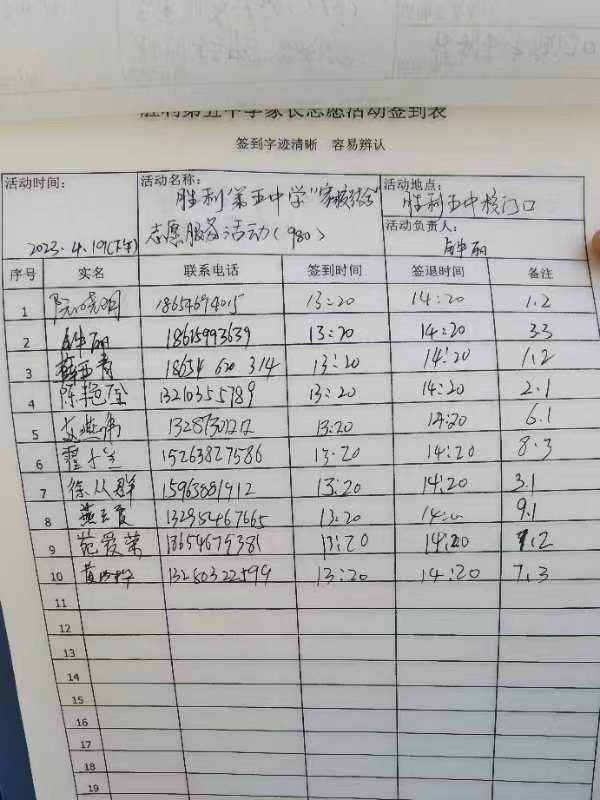 胜利第五中学家长志愿活动签到表
签到字迹清晰 容易辨认
活动时间: 2023.4.19(下午)
活动名称: 胜利第五中学"家校结合"
志愿服务活动(980)
活动地点: 胜利五中校门口
活动负责人: 丽
序号 实名 联系电话 签到时间 签退时间 备注
1 18654694015 13:20 14:20 1.2
2 丽 18615993639 13:20 14:20 3.3
3 18654 620 314 13:20 14:20 1.2
4 陈艳 13210355789 13:20 14:20 2.1
5 13:20 14:20 6.1
6 霍 15263827586 13:20 14:20 8.3
7 徐从群 15963881912 13:20 14:20 3.1
8 13295467665 13:20 9.1
9 范爱荣 13654679381 13:20 14:20 1.2
10 黄 13280322599 13:20 14:20 7.3
11
12
13
14
15
16
17
18
19